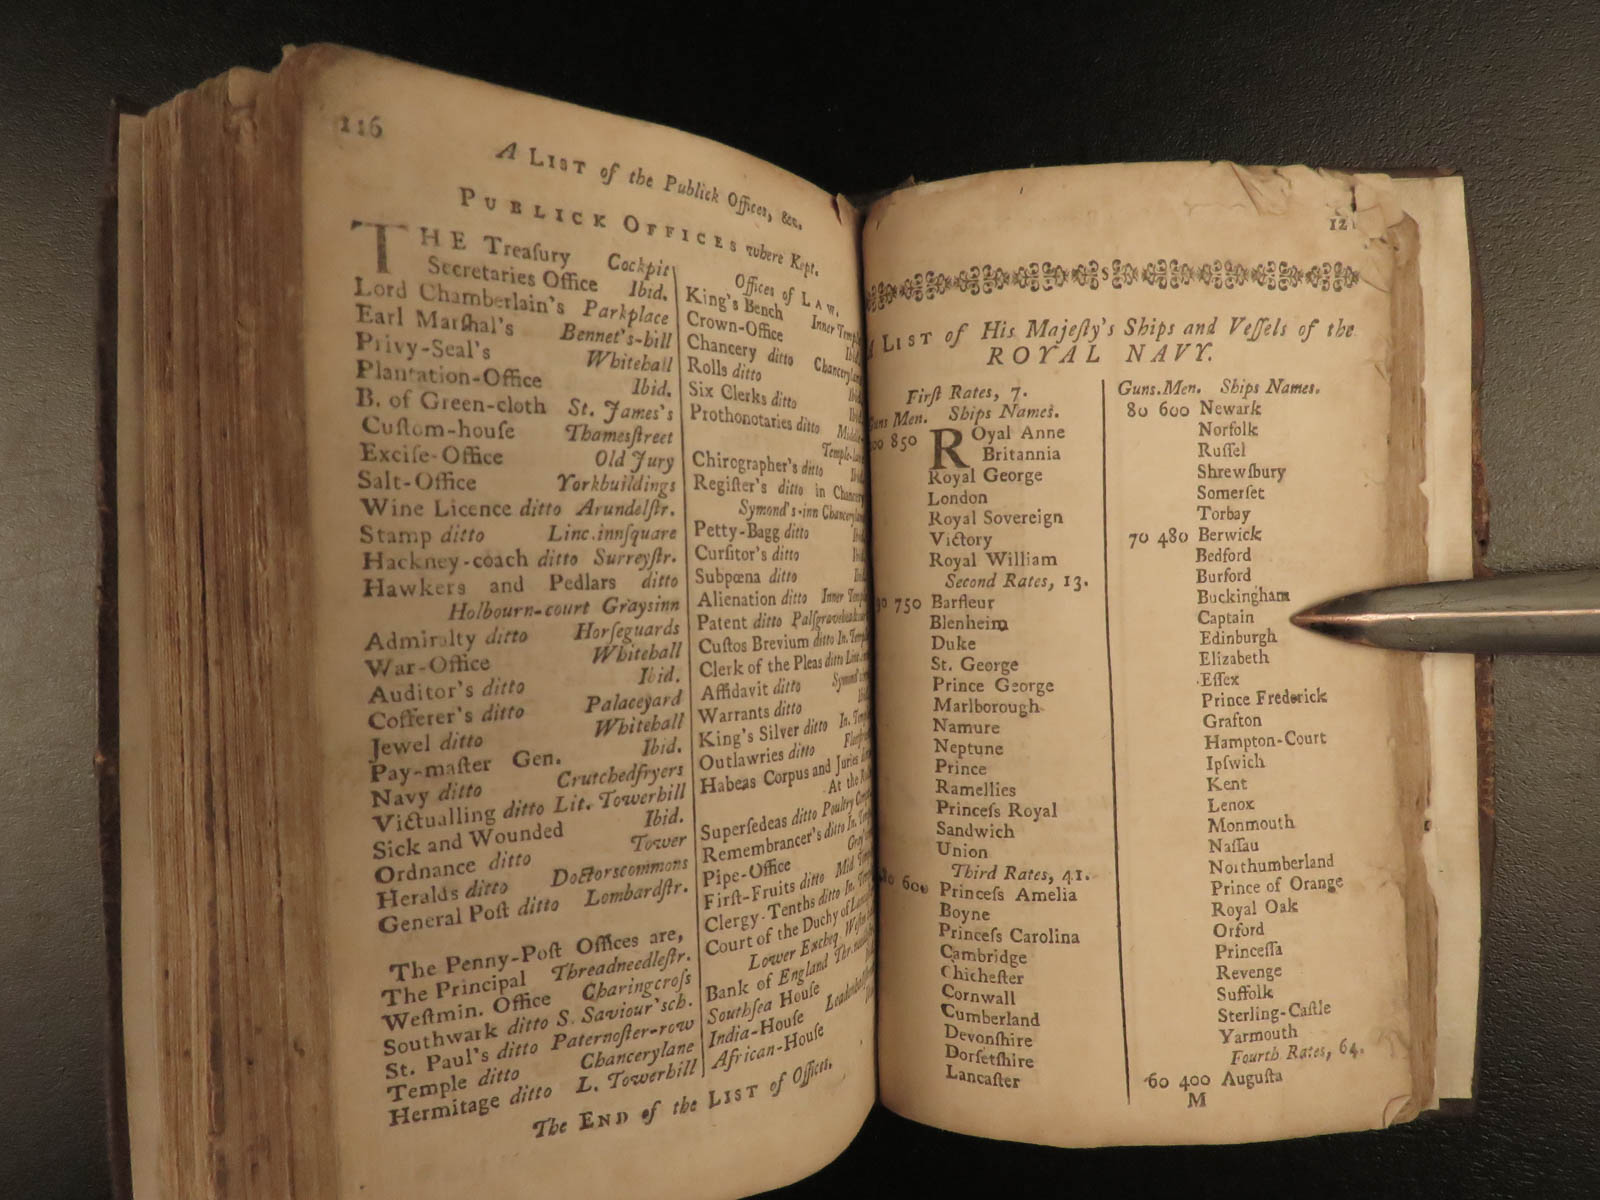 116
A LIST of the Publick Offices, &c.
PUBLICK OFFICES where Kept.
THE Treaſury Cockpit
Secretaries Office Ibid.
Lord Chamberlain's Parkplace
Earl Marſhal's Bennet's-hill
Privy-Seal's Whitehall
Plantation-Office Ibid.
B. of Green-cloth St. James's
Cuſtom-houſe Thamesſtreet
Exciſe-Office Old Jury
Salt-Office Yorkbuildings
Wine Licence ditto Arundelſtr.
Stamp ditto Linc.innſquare
Hackney-coach ditto Surreyſtr.
Hawkers and Pedlars ditto
Holbourn-court Graysinn
Admiralty ditto Horſeguards
War-Office Whitehall
Auditor's ditto Ibid.
Cofferer's ditto Palaceyard
Jewel ditto Whitehall
Pay-maſter Gen. Ibid.
Navy ditto Crutchedfryers
Victualling ditto Lit. Towerhill
Sick and Wounded Ibid.
Ordnance ditto Tower
Heralds ditto Doctorscommons
General Poſt ditto Lombardſtr.
The Penny-Poſt Offices are,
The Principal Threadneedleſtr.
Weſtmin. Office Charingcroſs
Southwark ditto S. Saviour'sch.
St. Paul's ditto Paternoſter-row
Temple ditto Chancerylane
Hermitage ditto L. Towerhill
Offices of LAW.
King's Bench Inner
Crown-Office
Chancery ditto
Rolls ditto
Six Clerks ditto
Prothonotaries ditto
Chirographer's ditto
Regiſter's ditto in
Symond's-inn
Petty-Bagg ditto
Curſitor's ditto
Subpœna ditto
Alienation ditto Inner
Patent ditto
Cuſtos Brevium ditto In.
Clerk of the Pleas ditto
Affidavit ditto
Warrants ditto
King's Silver ditto In.
Outlawries ditto
Habeas Corpus and Juries
At the
Superſedeas ditto Poultry
Remembrancer's ditto In.
Pipe-Office
Firſt-Fruits ditto Mid
Clergy-Tenths ditto In.
Court of the Duchy of
Lower Excheq.
Bank of England
Southſea Houſe
India-Houſe
African-Houſe
The END of the LIST of Offices.
12
LIST of His Majeſty's Ships and Veſſels of the
ROYAL NAVY.
Firſt Rates, 7.
Guns Men. Ships Names.
850 ROyal Anne
Britannia
Royal George
London
Royal Sovereign
Victory
Royal William
Second Rates, 13.
750 Barfleur
Blenheim
Duke
St. George
Prince George
Marlborough
Namure
Neptune
Prince
Ramellies
Princeſs Royal
Sandwich
Union
Third Rates, 41.
600 Princeſs Amelia
Boyne
Princeſs Carolina
Cambridge
Chicheſter
Cornwall
Cumberland
Devonſhire
Dorſetſhire
Lancaſter
Guns.Men. Ships Names.
80 600 Newark
Norfolk
Ruſſel
Shrewſbury
Somerſet
Torbay
70 480 Berwick
Bedford
Burford
Buckingham
Captain
Edinburgh
Elizabeth
Eſſex
Prince Frederick
Grafton
Hampton-Court
Ipſwich
Kent
Lenox
Monmouth
Naſſau
Northumberland
Prince of Orange
Royal Oak
Orford
Princeſſa
Revenge
Suffolk
Sterling-Caſtle
Yarmouth
Fourth Rates, 64.
60 400 Auguſta
M